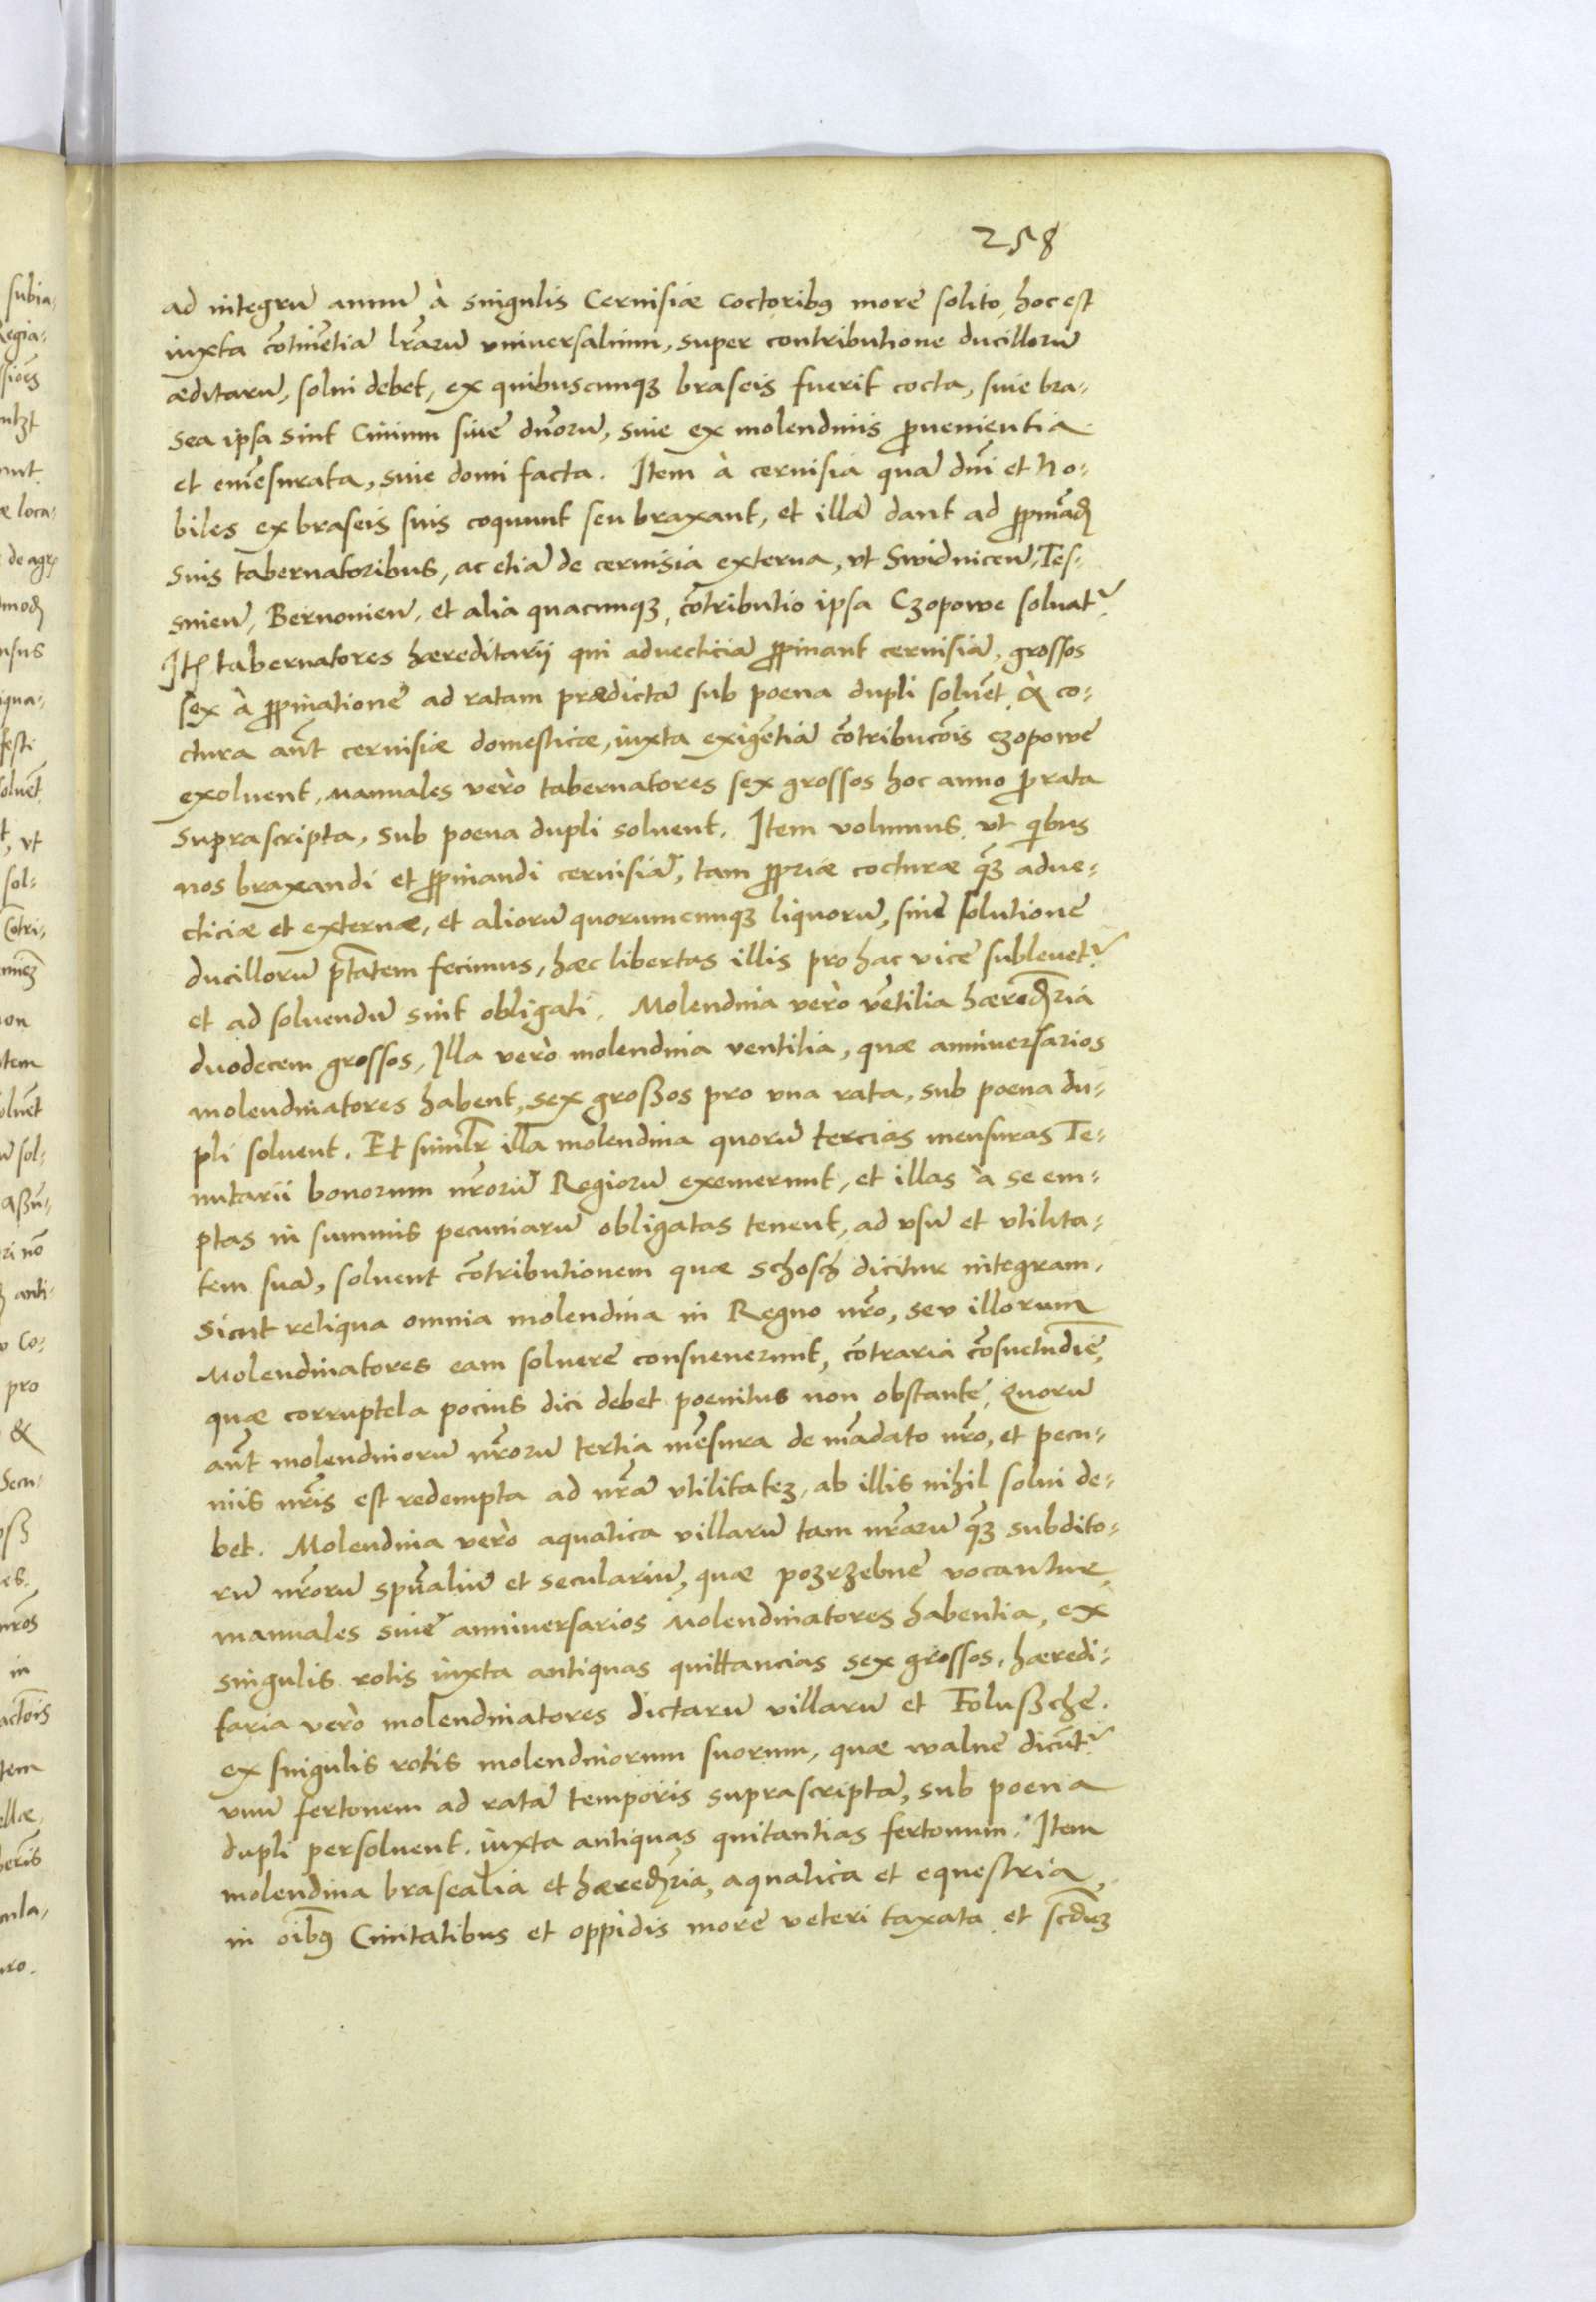 258
ad integrũ annũ à singulis Ceruisiæ coctoribꝯ more solito, hoc est
iuxta cõtinẽtiã lr̃arũ vniversalium, super contributione ducillorũ
æditarũ, solui debet, ex quibuscunqꝫ braseis fuerit cocta, siue bra-
sea ipsa sint Ciuium siue dñorũ, siue ex molendinis ꝓuenientia
et emẽsurata, siue domi facta. Item à ceruisia quã dñi et no-
biles ex braseis suis coquunt seu braxant, et illã dant ad ꝓpinãdꝭ
suis tabernatoribus, ac etiã de ceruisia externa, vt Swidniceñ, Tes-
snieñ, Bernouieñ, et alia quacunqꝫ, cõtributio ipsa Czopowe soluat᷑.
Itꝭ tabernatores hæreditarij qui aduecticiã ꝓpinant ceruisiã, grossos
sex à ꝓpinatione ad ratam prædictã sub poena dupli soluẽt, à co-
ctura aũt ceruisiæ domesticæ, iuxta exigẽtiã cõtribucõis czopowe
exoluent, manuales verò tabernatores sex grossos hoc anno ꝓ rata
suprascripta, sub poena dupli soluent. Item volumus, vt qibus
nos braxandi et ꝓpinandi ceruisiã, tam ꝓpriæ cocturæ qꝫ̃ adue-
cticiæ et externæ, et aliorũ quorumcunqꝫ liquorũ, sine solutione
ducillorũ ptãtem fecimus, hæc libertas illis pro hac vice subleuet᷑
et ad soluendũ sint obligati. Molendina verò vẽtilia hæredꝭria
duodecem grossos, Illa verò molendina ventilia, quæ anniuersarios
molendinatores habent, sex großos pro vna rata, sub poena du-
pli soluent. Et simlr̃ illa molendina quorũ tercias mensuras Te-
nutarii bonorum nr̃orũ Regiorũ exemerunt, et illas à se em-
ptas in summis pecuniarũ obligatas tenent, ad vsũ et vtilita-
tem suã, soluent cõtributionem quæ schosch dicitur integram,
Sicut reliqua omnia molendina in Regno nr̃o, seu illorum
Molendinatores eam soluere consueuerunt, cõtraria cõsuetudĩe,
quæ corruptela pocius dici debet poenitus non obstante, Quorũ
aũt molendinorũ nr̃orũ tertia mẽsura de mãdato nr̃o, et pecu-
niis nr̃is est redempta ad nr̃ã vtilitatẽꝫ, ab illis nihil solui de-
bet. Molendina verò aquatica villarũ tam nr̃arũ qꝫ̃ subdito-
rũ nr̃orũ spũaliũ et seculariũ, quæ pozrzebne vocantur
manuales siue anniuersarios Molendinatores habentia, ex
singulis rotis iuxta antiquas quittancias sex grossos, hæredi-
taria verò molendinatores dictarũ villarũ et Folußche.
ex singulis rotis molendinorum suorum, quæ walne dicũt᷑
vnũ fertonem ad ratã temporis suprascriptã, sub poena
dupli persoluent. iuxta antiquas quitantias fertonum. Item
molendina brasealia et hæredꝭria, aquatica et equestria,
in oĩbꝯ Ciuitatibus et oppidis more veteri taxata et scd̃uꝫ